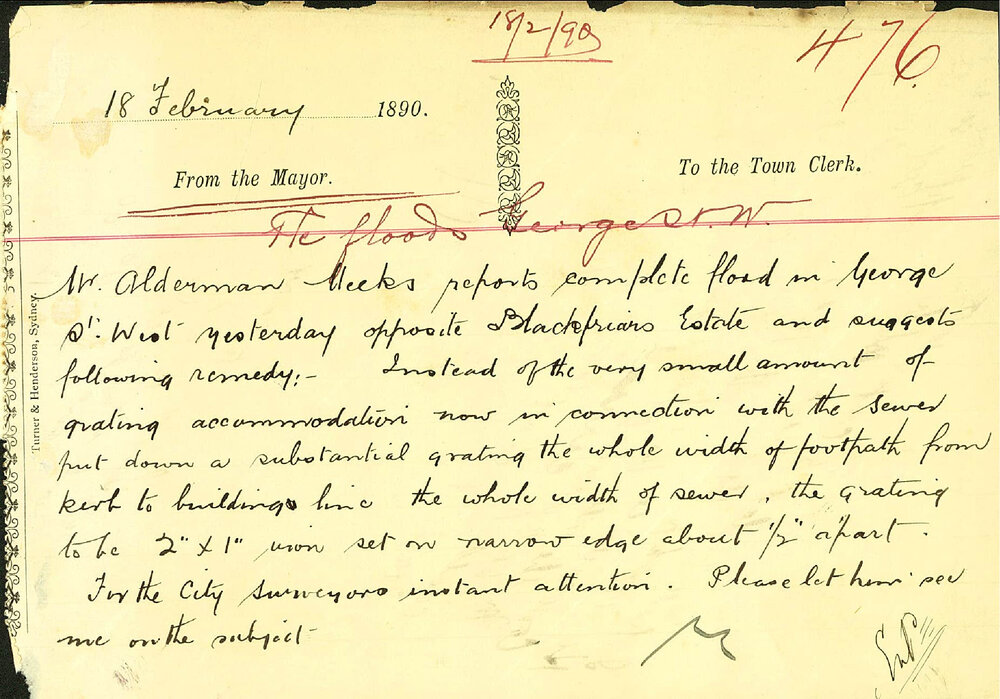 18/2/90
476
18 February 1890.
From the Mayor.
To the Town Clerk.
Re floods George St. W.
Mr. Alderman Meeks reports complete flood in George
St. West yesterday opposite Blackfriars Estate and suggests
following remedy:- Instead of the very small amount of
grating accommodation now in connection with the sewer
put down a substantial grating the whole width of footpath from
kerb to buildings line the whole width of sewer, the grating
to be 2" x 1" iron set on narrow edge about 1/2" apart.
For the City Surveyors instant attention. Please let him see
me on the subject
Turner & Henderson, Sydney.